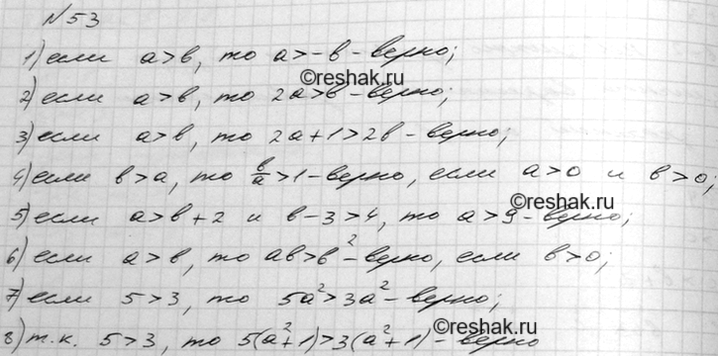 №53
1) если a>b, то a>-b - верно;
©reshak.ru
2) если a>b, то 2a>b - верно;
3) если a>b, то 2a+1>2b - верно;
4) если b>a, то b/a>1 - верно, если a>0 и b>0;
©reshak.ru
5) если a>b+2 и b-3>4, то a>9 - верно;
6) если a>b, то ab>b² - верно, если b>0;
7) если 5>3, то 5a²>3a² - верно;
©reshak.ru
8) т.к. 5>3, то 5(a²+1)>3(a²+1) - верно